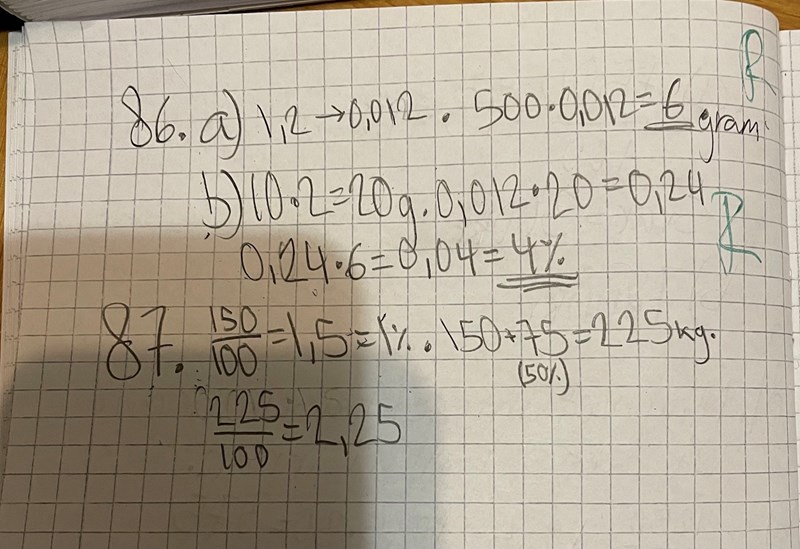 86. a) 1,2 → 0,012 . 500·0,012 = 6 gram R
b) 10·2=20g. 0,012·20=0,24 R
0,24·6=0,04=4%
87. 150/100 = 1,5 = 1% . 150+75=225kg.
(50%)
225/100 = 2,25